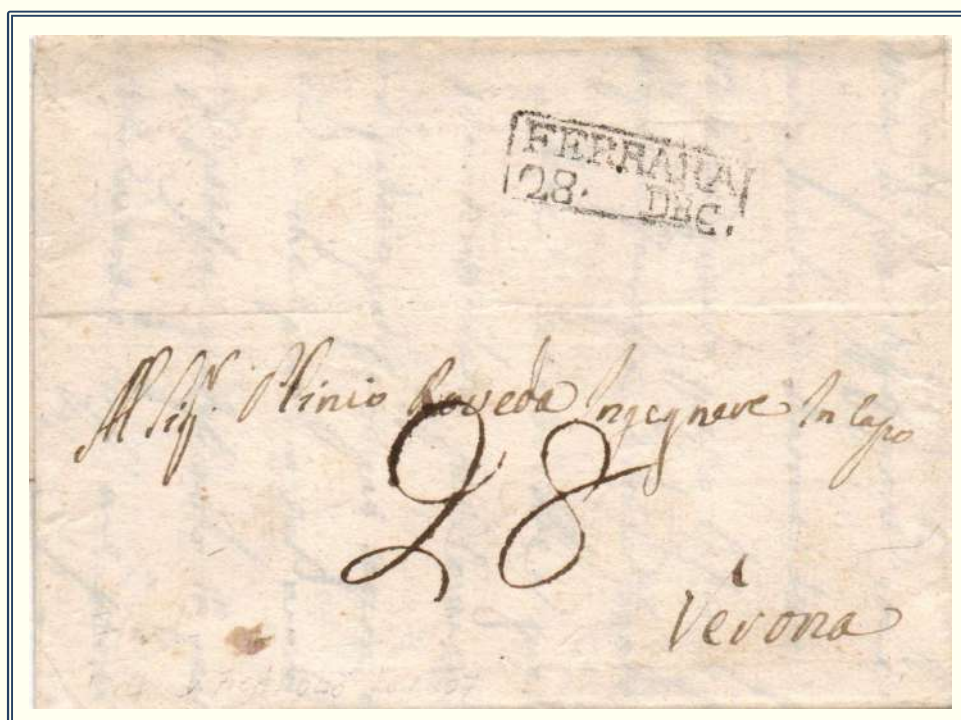 FERRARA
28. DEC.
Al Sig.r Plinio Roveda Ingegnere In Capo
28
Verona